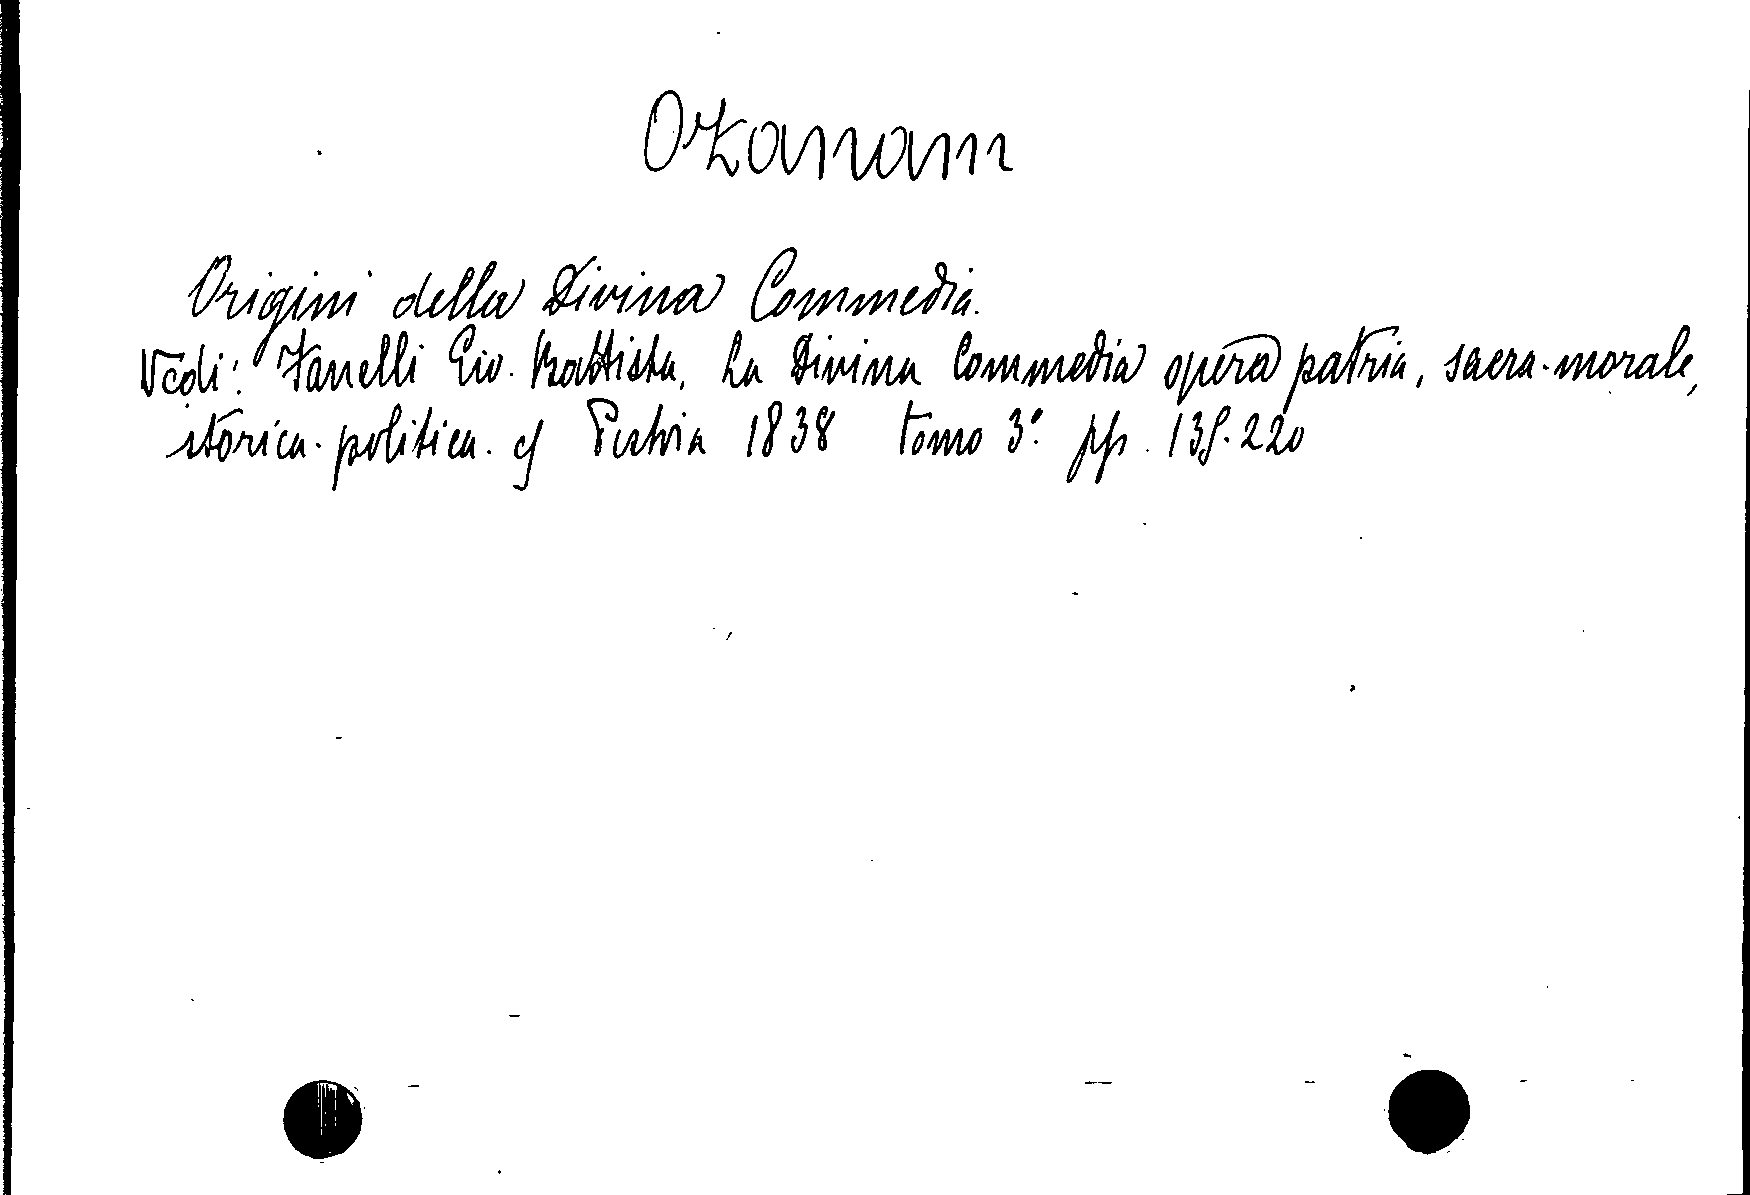 Ozanam
Origini della Divina Commedia.
Vedi: Fanelli Gio. Battista, La Divina Commedia opera patria, sacra-morale,
storica-politica. Pistoia 1838 tomo 3º pp.